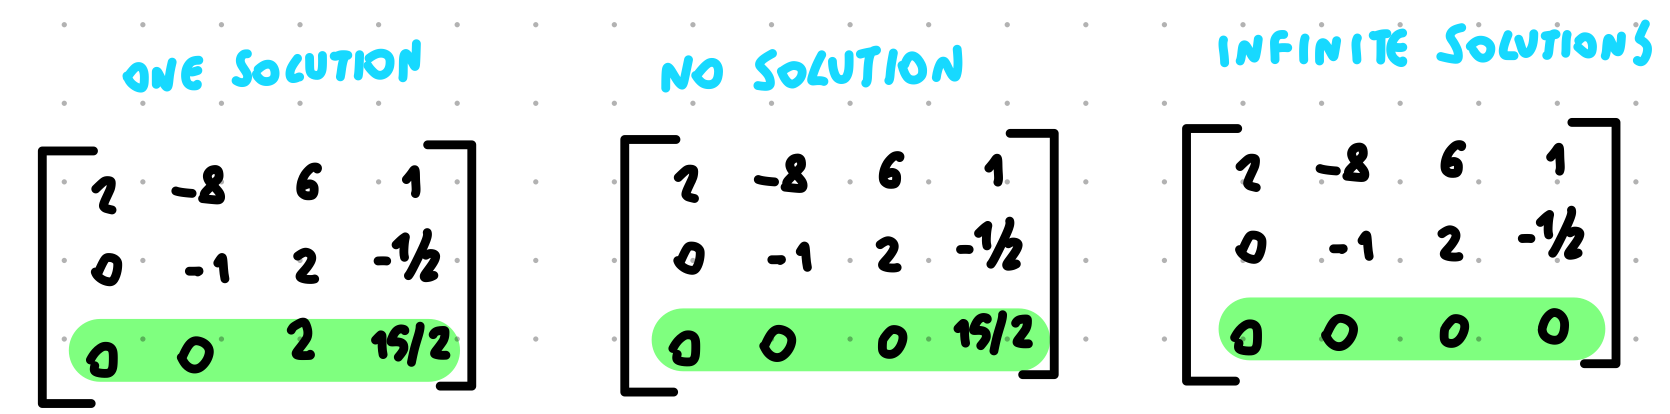 ONE SOLUTION
2 -8 6 1
0 -1 2 -1/2
0 0 2 15/2
NO SOLUTION
2 -8 6 1
0 -1 2 -1/2
0 0 0 15/2
INFINITE SOLUTIONS
2 -8 6 1
0 -1 2 -1/2
0 0 0 0